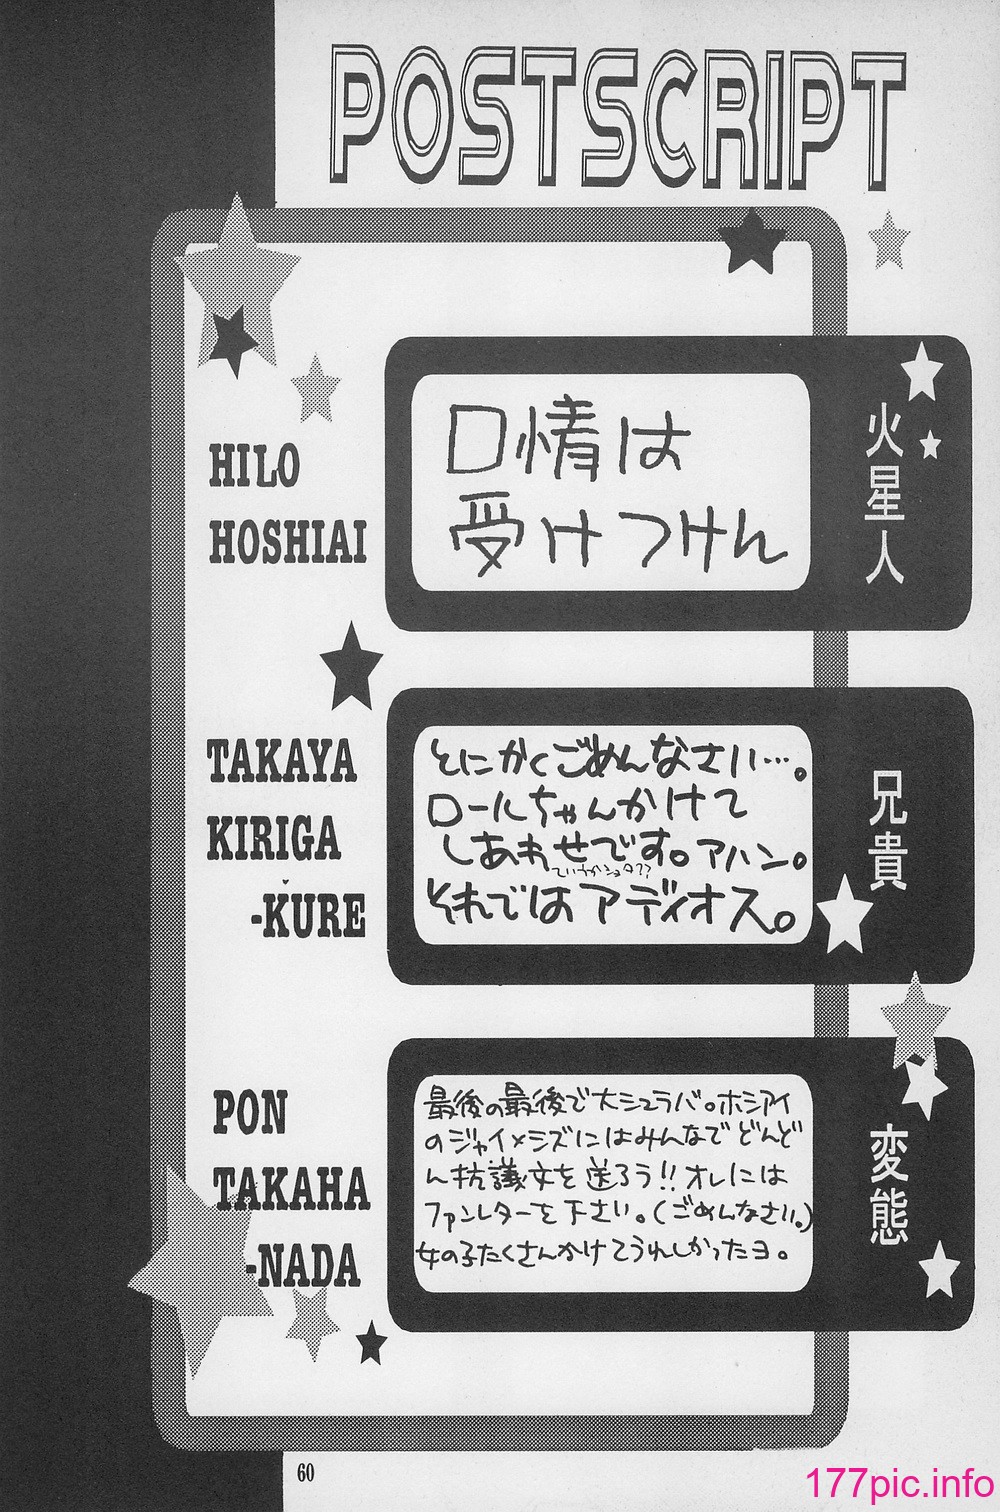 POSTSCRIPT
HILO
HOSHIAI
口情は
受けつけん
火星人
TAKAYA
KIRIGA
-KURE
とにかくごめんなさい…。
ロールちゃんかけて
しあわせです。アハン。
それではアディオス。
兄貴
PON
TAKAHA
-NADA
最後の最後で大シュラバ。ホシアイ
のジャイ×シズにはみんなでどんど
ん抗議文を送ろう!!オレには
ファンレターを下さい。(ごめんなさい。)
女の子たくさんかけてうれしかったヨ。
変態
60
177pic.info